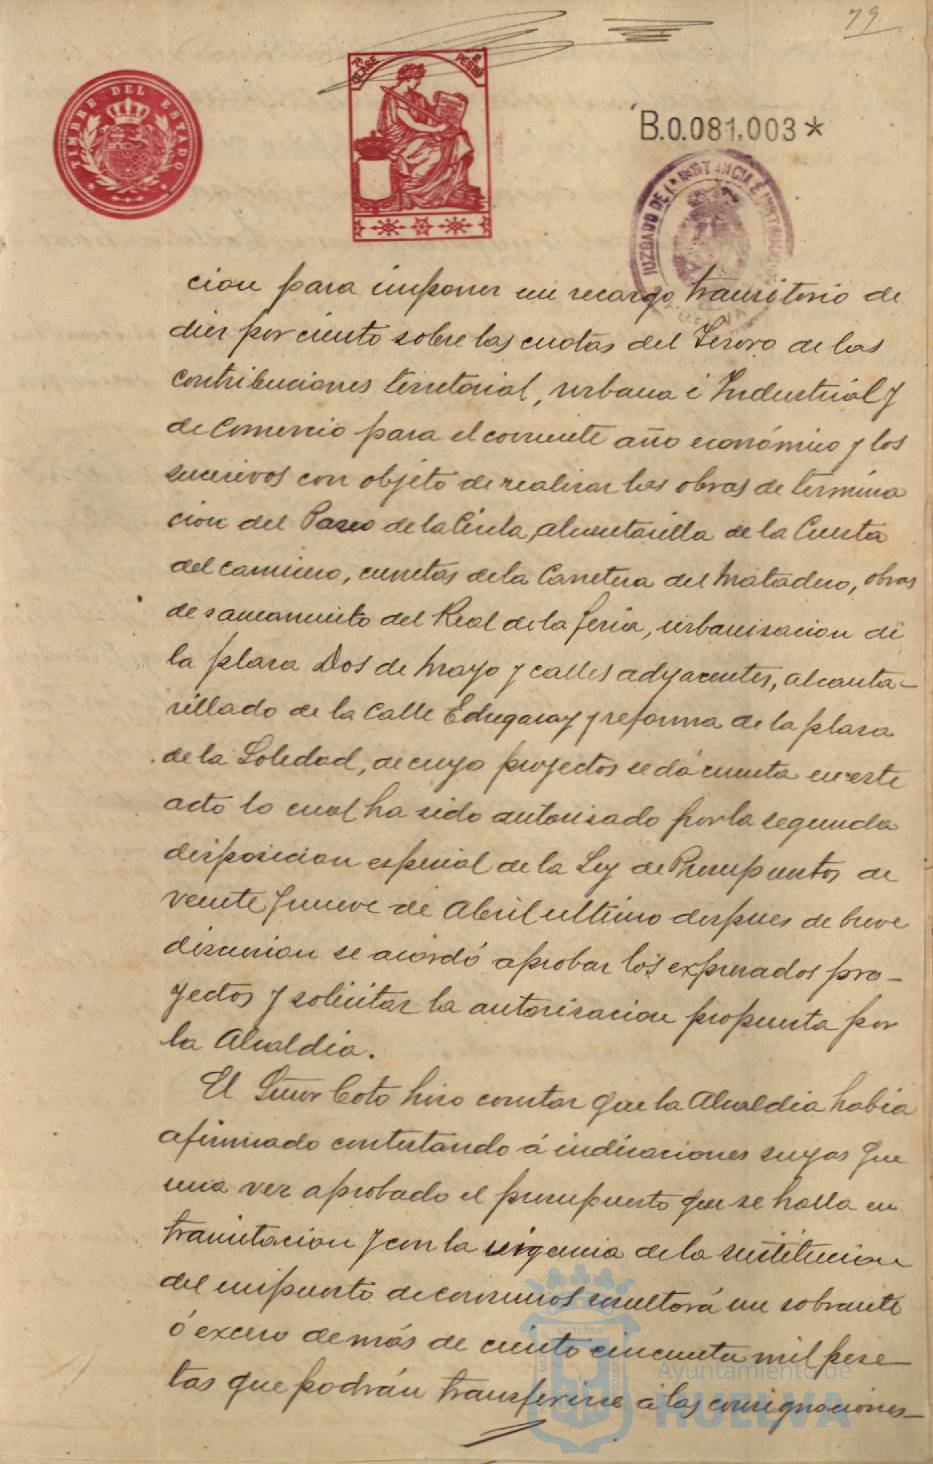 79
TIMBRE DEL ESTADO
7ª CLASE
PESETAS
B.0.081.003*
JUZGADO DE 1ª INSTANCIA É INSTRUCCION
HUELVA
cion para imponer un recargo transitorio de
diez por ciento sobre las cuotas del Tesoro de las
contribuciones territorial, urbana é Industrial y
de Comercio para el corriente año económico y los
sucesivos con objeto de realizar las obras de termina
cion del Paseo de la Cinta, alcantarilla de la Cuesta
del carnicero, cunetas de la Carretera del Matadero, obras
de saneamiento del Real de la feria, urbanizacion de
la plaza Dos de Mayo y calles adyacentes, alcanta-
rillado de la Calle Echegaray y reforma de la plaza
de la Soledad, de cuyo proyectos se dá cuenta en este
acto lo cual ha sido autorizado por la segunda
disposicion especial de la Ley de Presupuestos de
veinte y nueve de Abril ultimo despues de breve
discusion se acordó aprobar los expresados pro-
yectos y solicitar la autorizacion propuesta por
la Alcaldia.
El Señor Coto hizo constar que la Alcaldia habia
afirmado contestando á indicaciones suyas que
una vez aprobado el presupuesto que se halla en
tramitacion y con la vigencia de la sustitucion
del impuesto de consumos resultará un sobrante
ó exceso de más de ciento cincuenta mil pese-
tas que podrán transferirse á las consignaciones-
Ayuntamiento de
HUELVA